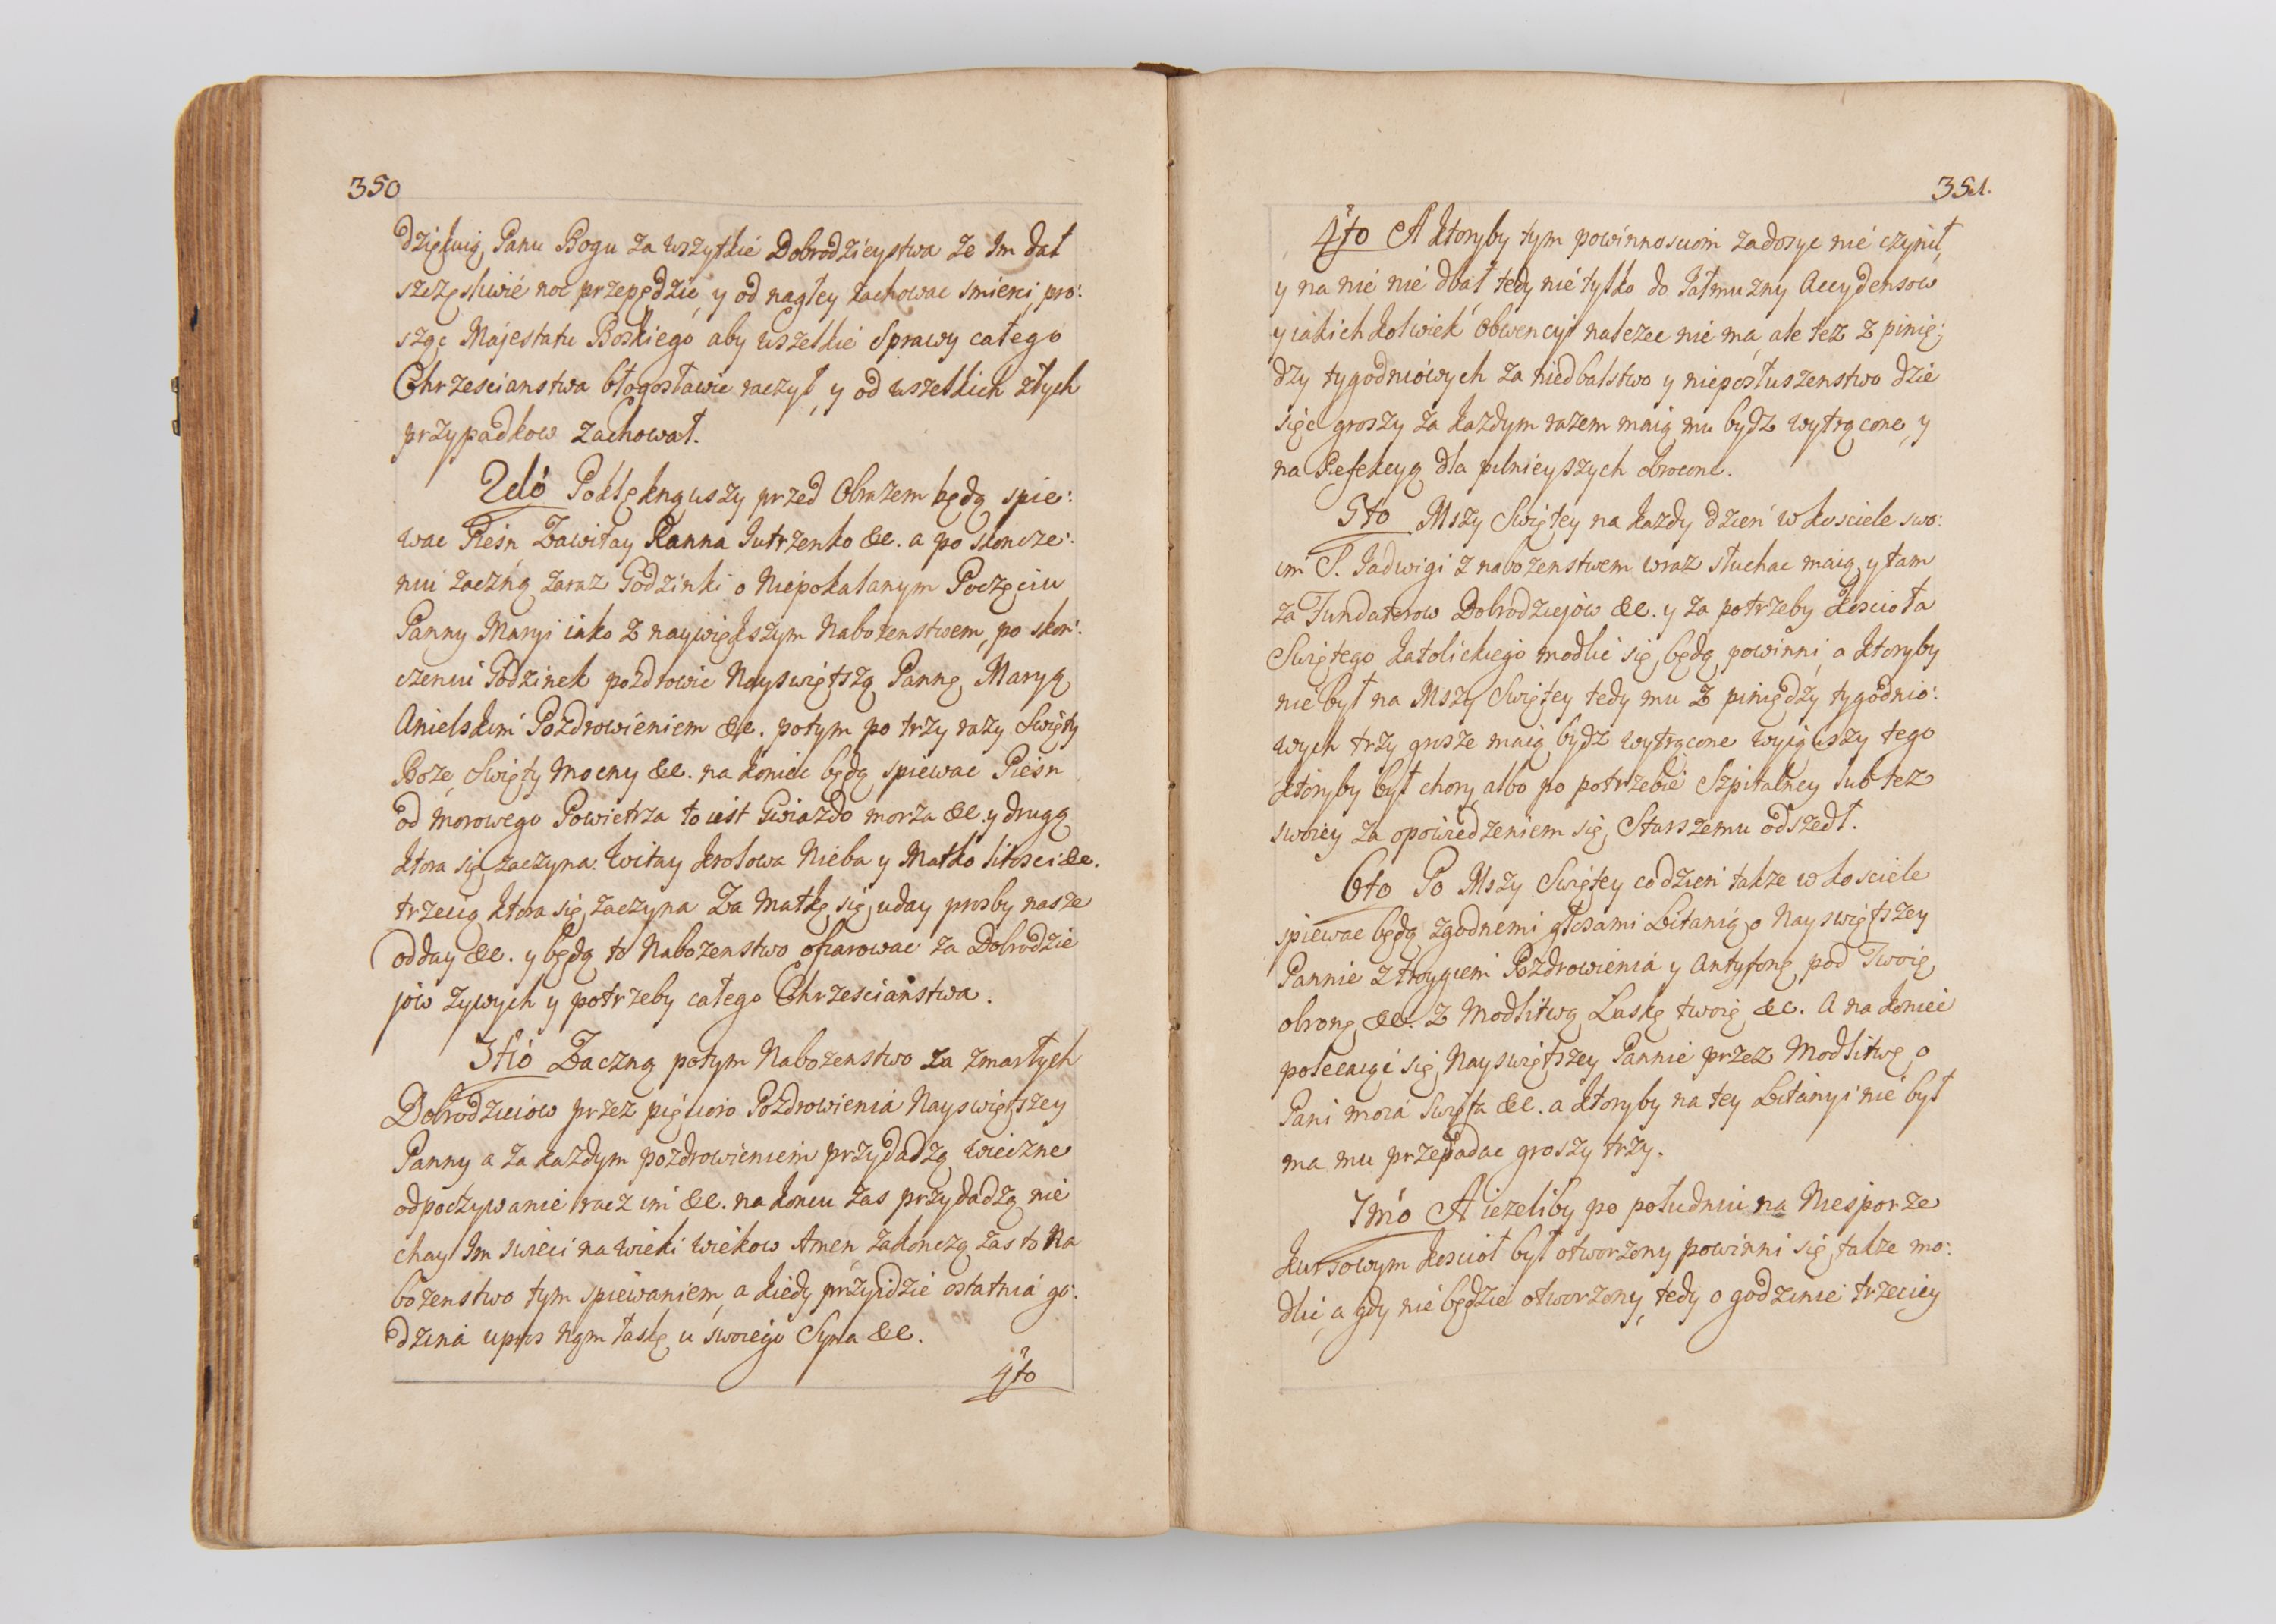 350
dziękuią Panu Bogu za wszytkié Dobrodzieystwa że Im dał
szczęsliwié noc przepędzić, y od nagłey zachować smierci, pro:
sząc Majestatu Boskiego aby wszelkié Sprawy całego
Chrzescianstwa błogosławić raczył, y od wszelkich złych
przypadkow zachował.
2dó Poklęknąwszy przed Obrazem będą spie:
wać Piesn Zawitay Ranna Jutrzenko &c. a po skończe:
niu zaczną zaraz Godzinki o Niepokalanym Poczęciu
Panny Maryi iako z naywiększym Nabożenstwem, po skoń:
czeniu Godzinek pozdrowić Nayswiętszą Pannę Maryą
Anielskim Pozdrowieniem &c. potym po trzy razy Swięty
Boże, Swięty Mocny &c. na koniec będą spiewać Piesn
od morowego Powietrza to iest Gwiazdo morza &c. y drugą
ktora się zaczyna: Witay Krolowa Nieba y Matko litosci &c.
trzecią ktora się zaczyna Za Matkę się uday prosby nasze
odday &c. y będą to Nabożenstwo ofiarować za Dobrodzie
jów żywych y potrzeby całego Chrzescianstwa.
3tió Zaczną potym Nabożenstwo za zmarłych
Dobrodzieiów przez pięcioro Pozdrowienia Nayswiętszey
Panny a za każdym pozdrowieniem przydadzą wieczne
odpoczywanie racz im &c. na końcu zas przydadzą nie
chay Im swieci na wieki wiekow Amen zakończą zas to Na
bożenstwo tym spiewaniem, a kiedy przyidzie ostatnia go:
dzina upros nąm łaskę u swoiego Syna &c.
4to
351.
4to A ktoryby tym powinnosciom zadosyc nié czynił,
y na nié nié dbał tedy nié tylko do Jałmużny Accydensow
y iakichkolwiek Obwencyi należeć nié ma, ale też z pinię:
dzy tygodniówych za niedbalstwo y nieposłuszenstwo dzie
sięć groszy za każdym razem maią mu bydz wytrącone, y
na Refekcyą dla pilnieyszych obrocone.
5to Mszy Swiętey na każdy dzień w kosciele swo:
im S. Jadwigi z nabożenstwem wraz słuchać maią, y tam
za Fundatorow Dobrodziejów &c. y za potrzeby Koscioła
Swiętego Katolickiego modlić się będą powinni, a ktoryby
nié był na Mszy Swiętey tedy mu z piniędzy tygodnio:
wych trzy grosze maią bydz wytrącone wyiąwszy tego
ktoryby był chory albo po potrzebié Szpitalney lub też
swoiey za opowiedzeniem się Starszemu odszedł.
6to Po Mszy Swiętey codzień także w kosciele
spiewać będą zgodnemi głosami Litanią o Nayswiętszey
Pannie z troygiem Pozdrowienia y Antyfonę pod Twoię
obronę &c. z Modlitwą Łaskę twoię &c. A na koniec
polecaiąc się Nayswiętszey Pannie przez Modlitwę o
Pani moia Swięta &c. a ktoryby na tey Litanyi nié był
ma mu przepadać groszy trzy.
7mó A ieżeliby po południu na Niesporze
kursowym Kosciół był otworzony powinni się także mo:
dlić, a gdy nié będzie otworzony, tedy o godzinie trzeciey